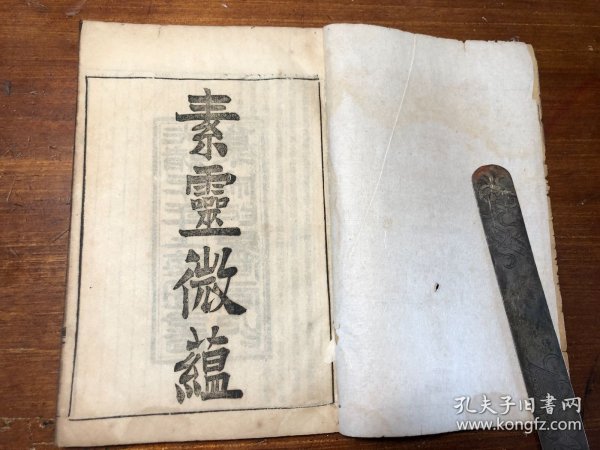 素靈微蘊
孔夫子旧書网
www.kongfz.com